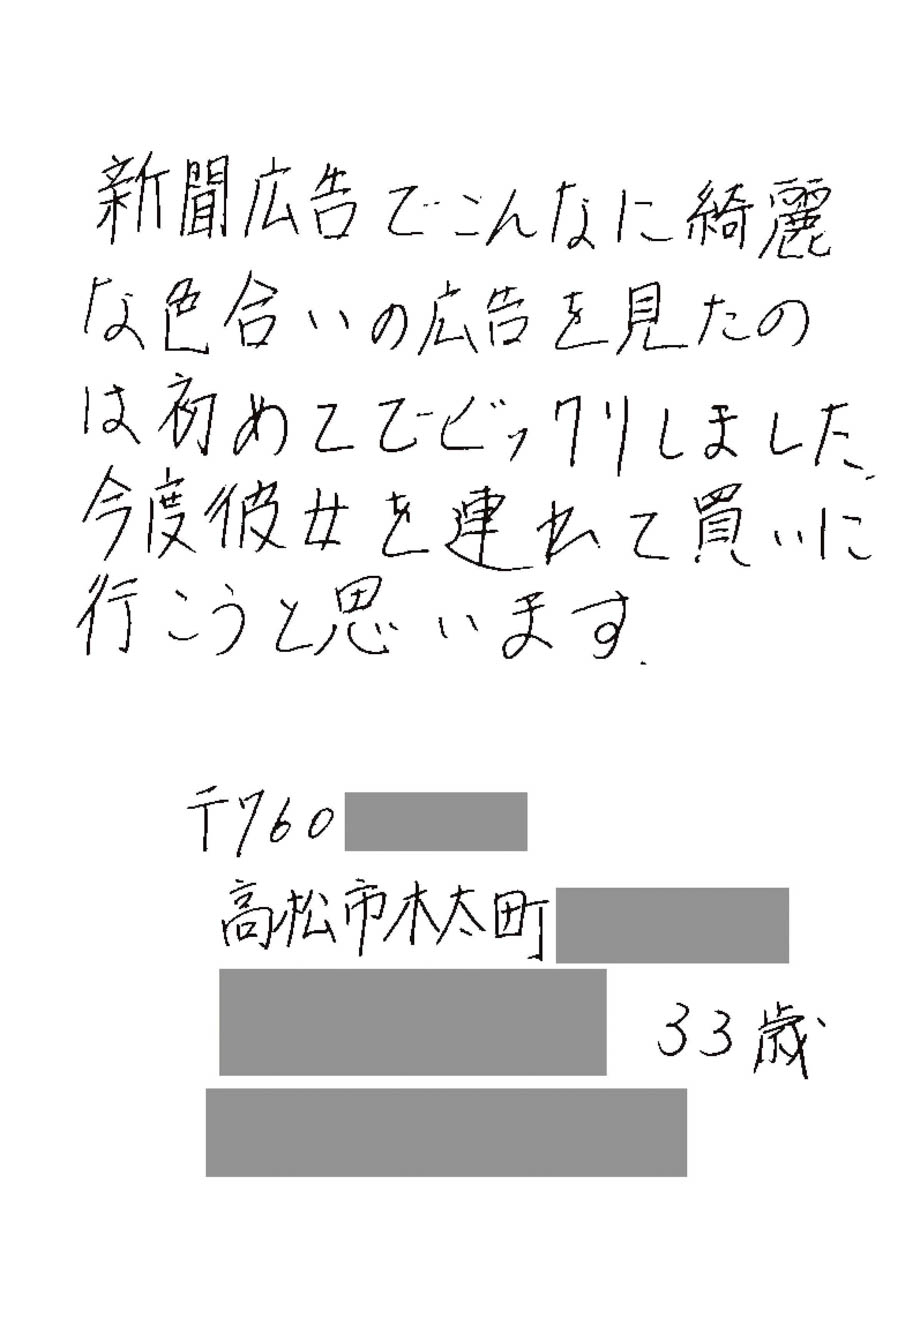 新聞広告でこんなに綺麗
な色合いの広告を見たの
は初めてでビックリしました.
今度彼女を連れて買いに
行こうと思います.
〒760
高松市木太町
33歳